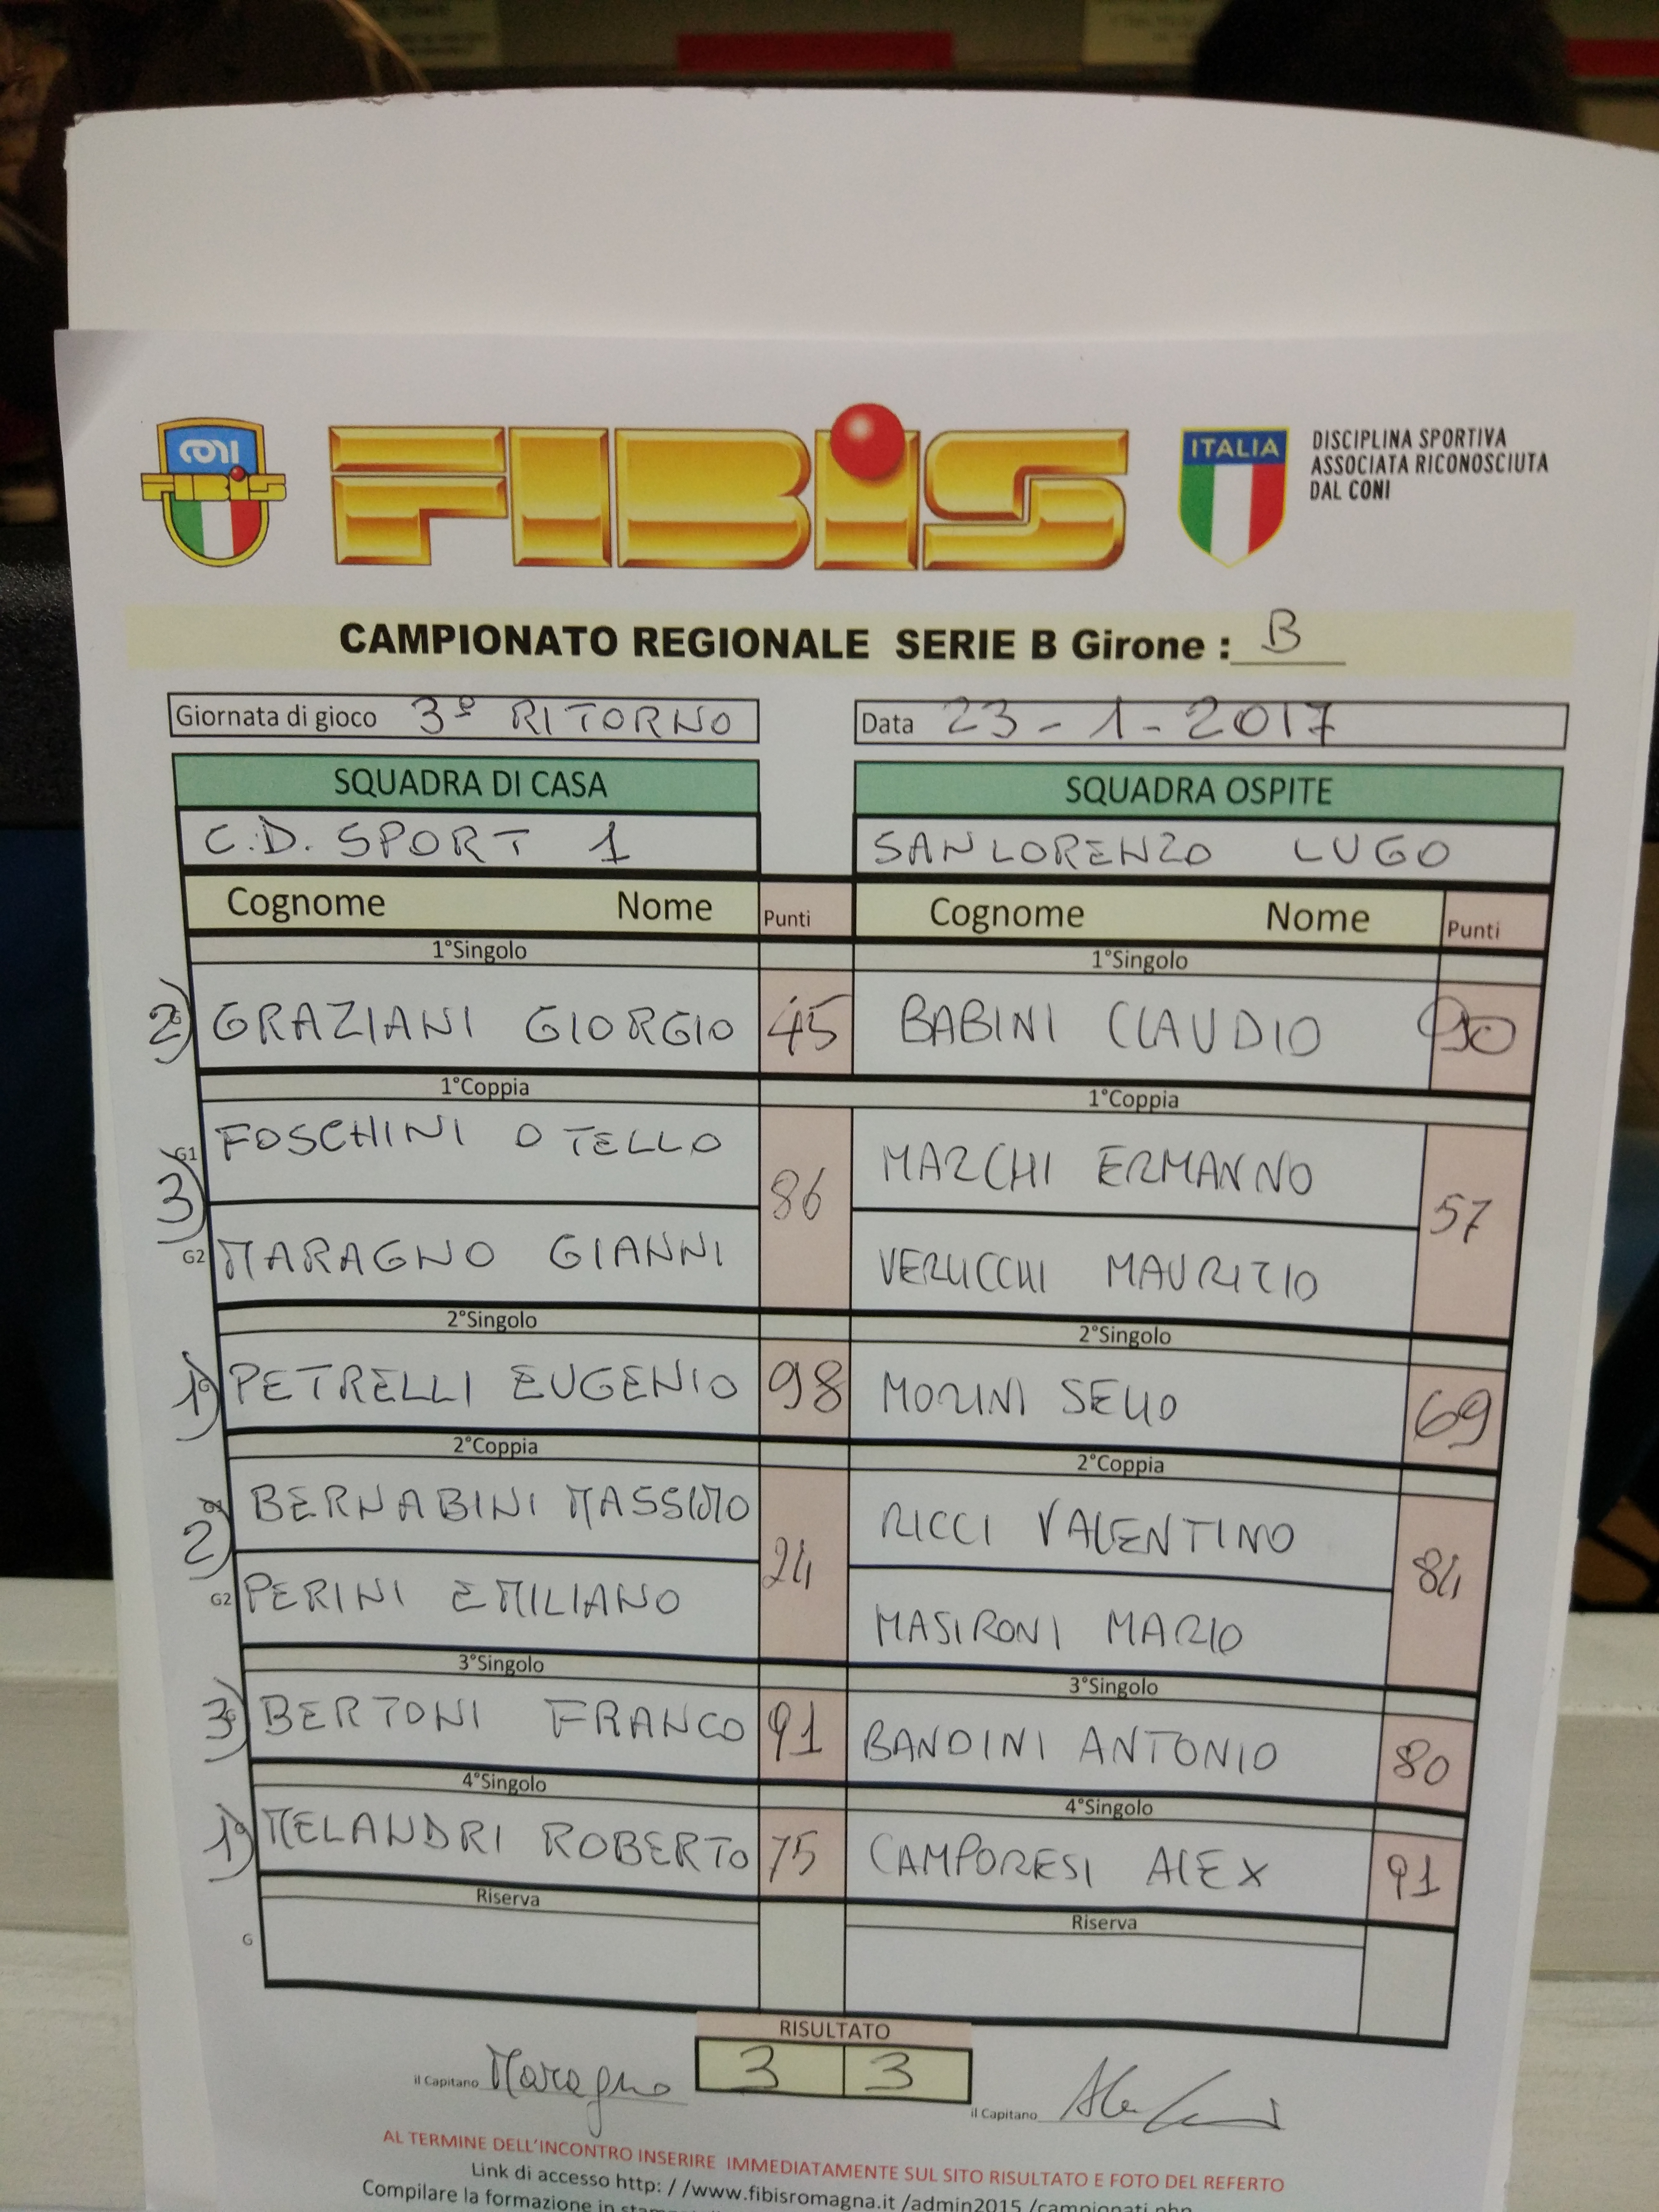 CONI
FIBIS
FIBIS
ITALIA
DISCIPLINA SPORTIVA
ASSOCIATA RICONOSCIUTA
DAL CONI
CAMPIONATO REGIONALE SERIE B Girone : B
Giornata di gioco 3° RITORNO Data 23 - 1 - 2017
SQUADRA DI CASA SQUADRA OSPITE
C.D. SPORT 1 SANLORENZO LUGO
Cognome Nome Punti Cognome Nome Punti
1°Singolo 1°Singolo
2) GRAZIANI GIORGIO 45 BABINI CLAUDIO 90
1°Coppia 1°Coppia
G1 FOSCHINI OTELLO MARCHI ERMANNO
3) 86 57
G2 MARAGNO GIANNI VERUCCHI MAURIZIO
2°Singolo 2°Singolo
1) PETRELLI EUGENIO 98 MORINI SELLO 69
2°Coppia 2°Coppia
BERNABINI MASSIMO RICCI VALENTINO
2) 24 84
G2 PERINI EMILIANO MASIRONI MARIO
3°Singolo 3°Singolo
3) BERTONI FRANCO 91 BANDINI ANTONIO 80
4°Singolo 4°Singolo
1) MELANDRI ROBERTO 75 CAMPORESI ALEX 91
Riserva Riserva
G
RISULTATO
il Capitano Maragno 3 3 il Capitano
AL TERMINE DELL'INCONTRO INSERIRE IMMEDIATAMENTE SUL SITO RISULTATO E FOTO DEL REFERTO
Link di accesso http: / /www.fibisromagna.it /admin2015 /campionati.php
Compilare la formazione in